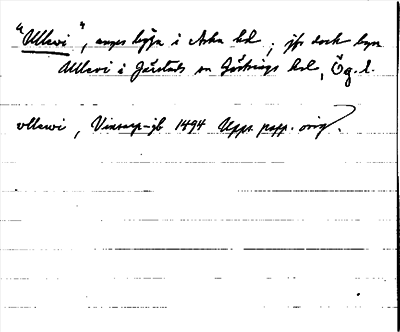 "Ullevi", anges ligga i Aska hd; jfr dock byn
Ullevi i Gärstads sn Göstrings hd, Ög. l.
vllewi, Vinsarp-jb 1494 Upps. papp. orig.